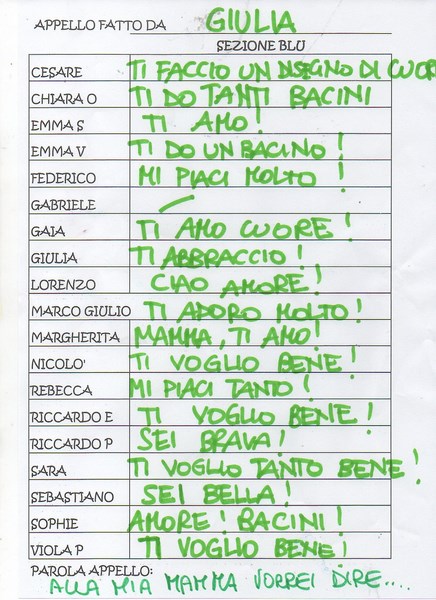 APPELLO FATTO DA GIULIA
SEZIONE BLU
CESARE TI FACCIO UN DISEGNO DI CUOR
CHIARA O TI DO TANTI BACINI
EMMA S TI AMO!
EMMA V TI DO UN BACINO!
FEDERICO MI PIACI MOLTO!
GABRIELE
GAIA TI AMO CUORE!
GIULIA TI ABBRACCIO!
LORENZO CIAO AMORE!
MARCO GIULIO TI ADORO MOLTO!
MARGHERITA MAMMA, TI AMO!
NICOLO' TI VOGLIO BENE!
REBECCA MI PIACI TANTO!
RICCARDO E TI VOGLIO BENE!
RICCARDO P SEI BRAVA!
SARA TI VOGLIO TANTO BENE!
SEBASTIANO SEI BELLA!
SOPHIE AMORE! BACINI!
VIOLA P TI VOGLIO BENE!
PAROLA APPELLO:
ALLA MIA MAMMA VORREI DIRE....